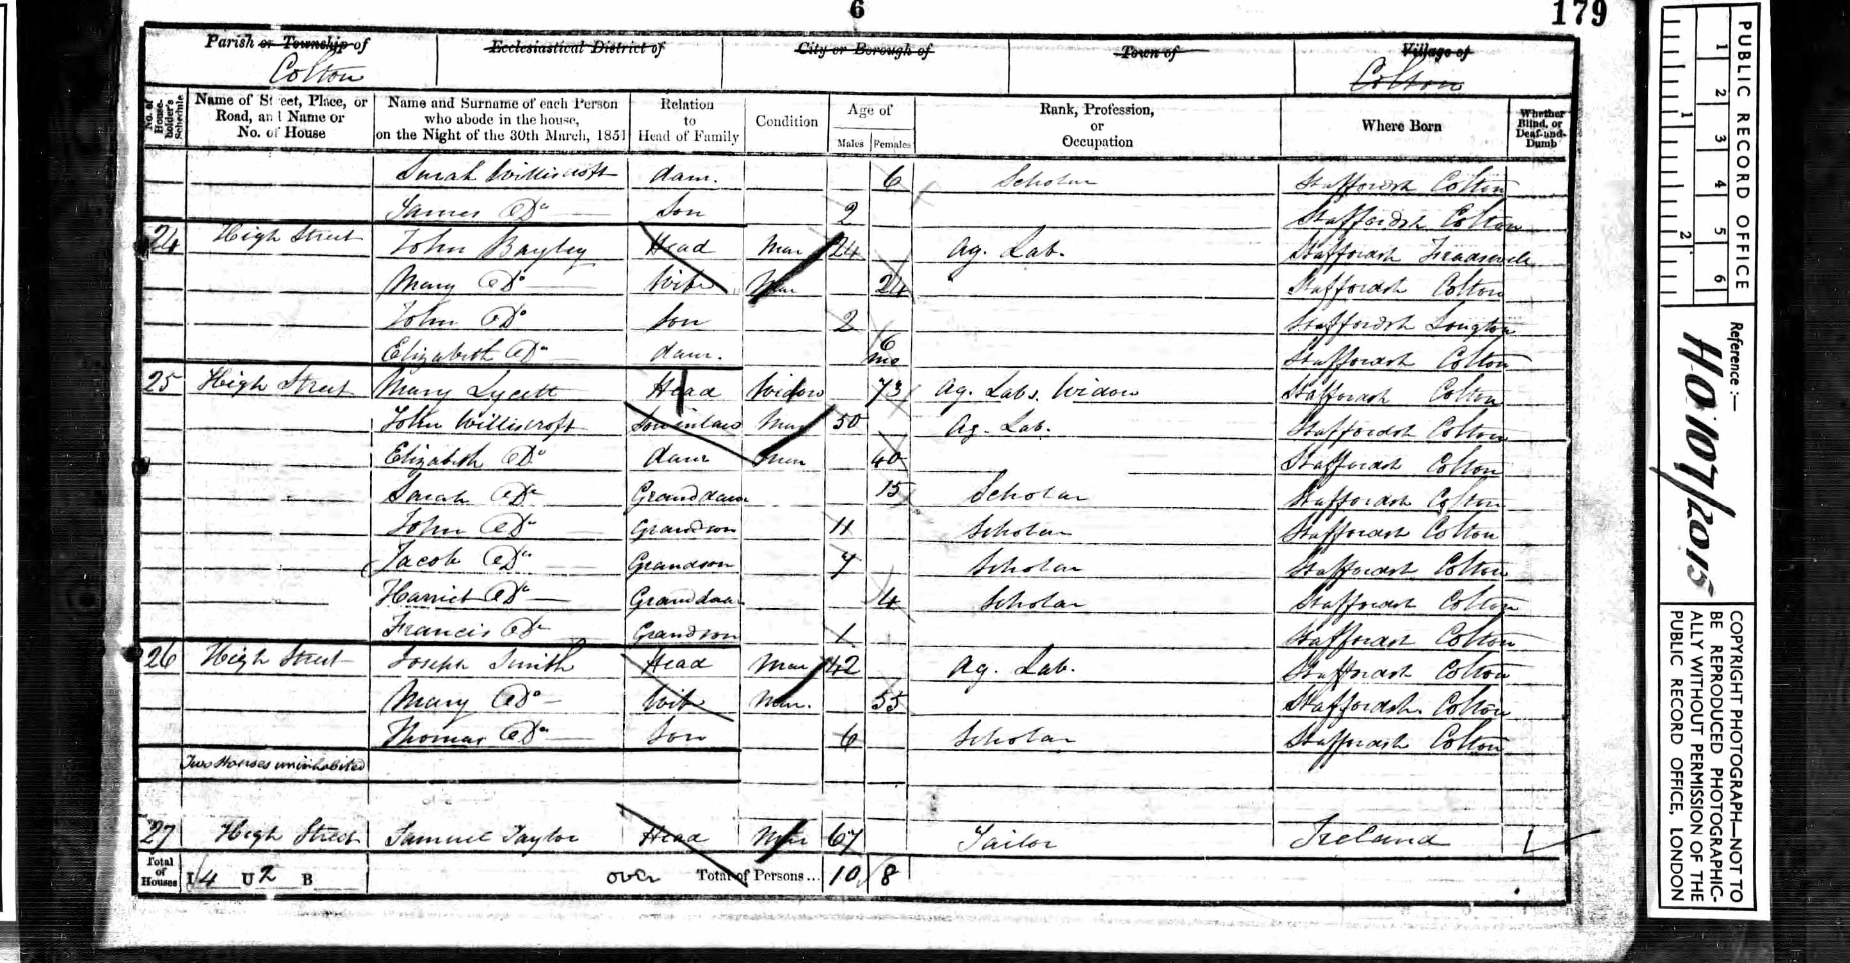 6
179
Parish or Township of
Colton
Ecclesiastical District of
City or Borough of
Town of
Village of
Colton
No. of House-holder's Schedule
Name of Street, Place, or Road, and Name or No. of House
Name and Surname of each Person who abode in the house, on the Night of the 30th March, 1851
Relation to Head of Family
Condition
Age of
Males Females
Rank, Profession, or Occupation
Where Born
Whether Blind, or Deaf-and-Dumb
Sarah Williscroft daur. 6 Scholar Staffordsh Colton
James Do son 2 Staffordsh Colton
24 High Street John Bayley Head Mar 24 Ag. Lab. Staffordsh
Mary Do Wife Mar 24 Staffordsh Colton
John Do son 2 Staffordsh Longton
Elizabeth Do daur. 6 mo Staffordsh Colton
25 High Street Mary Lycett Head Widow 73 Ag. Labs. Widow Staffordsh Colton
John Williscroft Son in law Mar 50 Ag. Lab. Staffordsh Colton
Elizabeth Do daur Mar 40 Staffordsh Colton
Sarah Do Granddaur 15 Scholar Staffordsh Colton
John Do Grandson 11 Scholar Staffordsh Colton
Jacob Do Grandson 7 Scholar Staffordsh Colton
Harriet Do Granddaur 4 Scholar Staffordsh Colton
Francis Do Grandson 1 Staffordsh Colton
26 High Street Joseph Smith Head Mar 42 Ag. Lab. Staffordsh Colton
Mary Do Wife Mar. 55 Staffordsh. Colton
Thomas Do Son 6 Scholar Staffordsh Colton
Two Houses uninhabited
27 High Street Samuel Taylor Head Mar 67 Tailor Ireland
Total of Houses I 4 U 2 B over Total of Persons... 10 8
PUBLIC RECORD OFFICE
1 2 3 4 5 6
1 2
Reference :—
H.O. 107/2015
COPYRIGHT PHOTOGRAPH—NOT TO BE REPRODUCED PHOTOGRAPHIC-ALLY WITHOUT PERMISSION OF THE PUBLIC RECORD OFFICE, LONDON